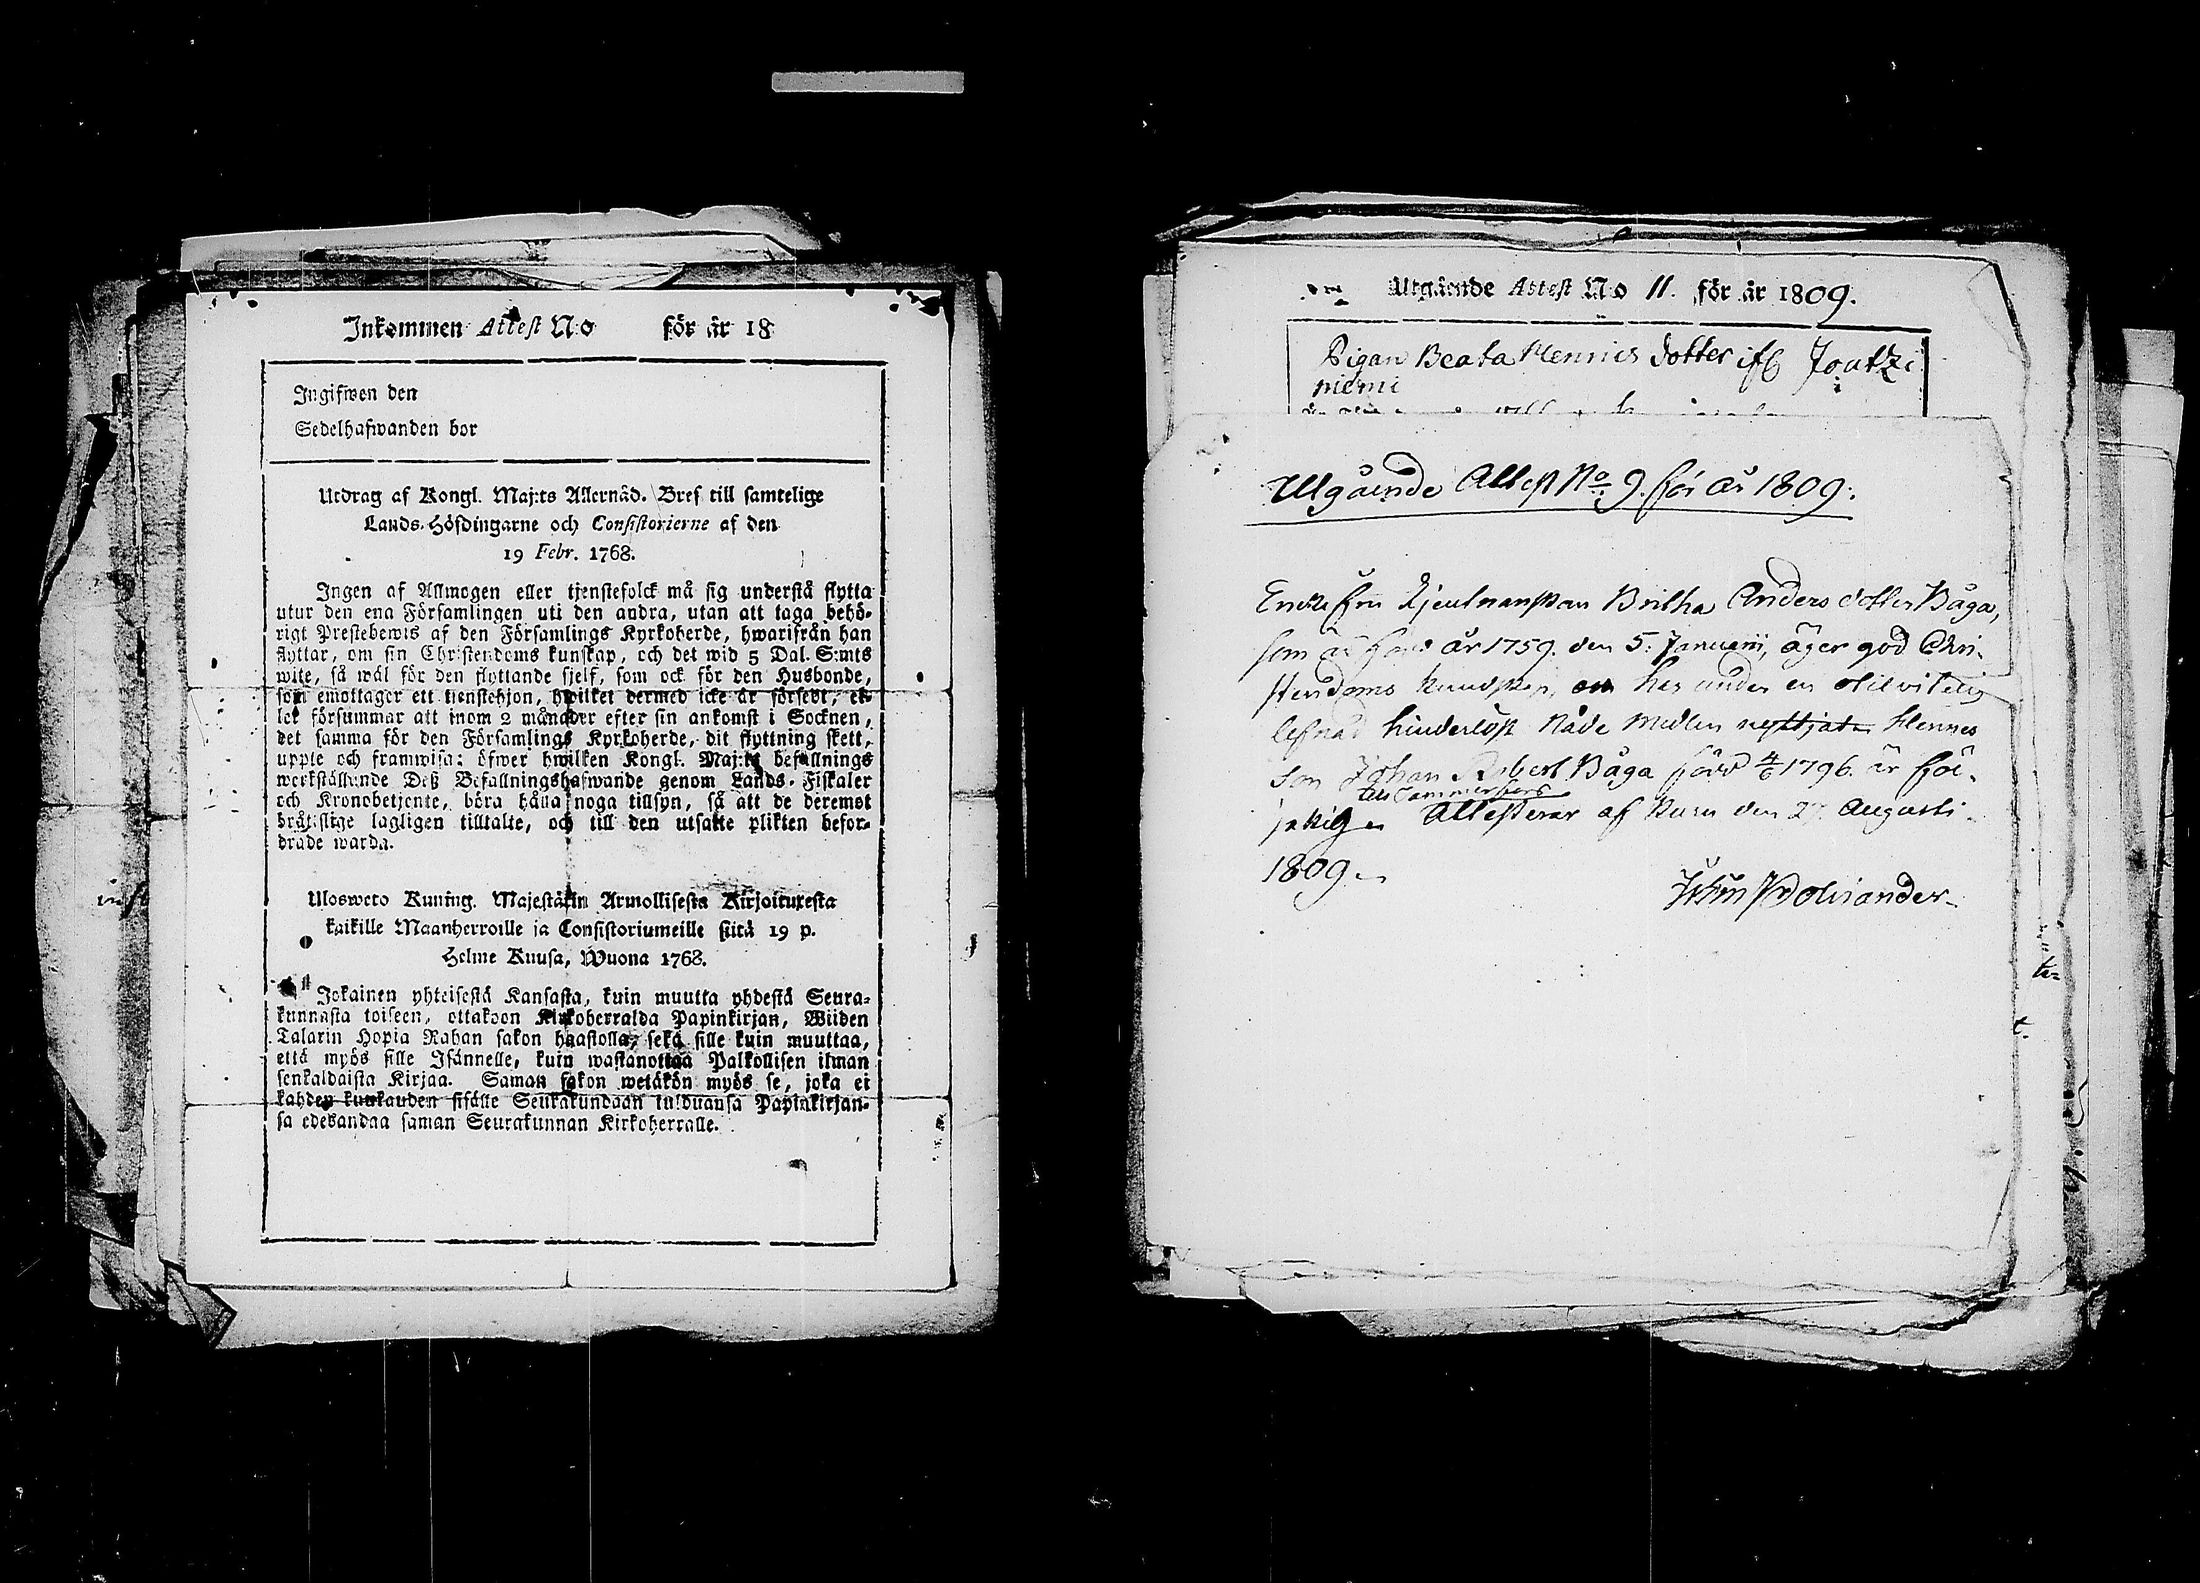 Inkommen Attest N:o för år 18
Ingifwen den
Sedelhafwanden bor
Utdrag af Kongl. Maj:ts Allernåd. Bref till samtelige
Lands-Höfdingarne och Consistorierne af den
19 Febr. 1768.
Ingen af Allmogen eller tjenstefolck må sig understå flytta
utur den ena Församlingen uti den andra, utan att taga behö-
rigt Prestebewis af den Församlings Kyrkoherde, hwarifrån han
flyttar, om sin Christendoms kunskap, och det wid 5 Dal. S:mts
wite, så wäl för den flyttande sjelf, som ock för den Husbonde,
som emottager ett tienstehjon, hwilket dermed icke är försedt, el-
ler försummar att inom 2 månader efter sin ankomst i Socknen,
det samma för den Församlings Kyrkoherde, dit flyttning skett,
uppte och framwisa: öfwer hwilken Kongl. Maj:ts befallnings
werkställande Deß Befallningshafwande genom Lands-Fiskaler
och Kronobetjente, böra hålla noga tillsyn, så att de deremot
bråtslige lagligen tilltalte, och till den utsatte plikten befor-
drade warda.
Ulosweto Kuning. Majestätin Armollisesta Kirjoituxesta
kaikille Maanherroille ja Consistoriumeille siitä 19 p.
Helme Kuusa, Wuona 1768.
Jokainen yhteisestä Kansasta, kuin muutta yhdestä Seura-
kunnasta toiseen, ottakoon Kirkoherralda Papinkirjan, Wiiden
Talarin Hopia Rahan sakon haastolla, sekä sille kuin muuttaa,
että myös sille Isännelle, kuin wastanottaa Palkollisen ilman
senkaldaista Kirjaa. Saman sakon wetäkön myös se, joka ei
kahden kuukauden sisälle Seurakundaan tulduansa Papinkirjan-
sa edesandaa saman Seurakunnan Kirkoherralle.
Utgående Attest N:o 11. för år 1809.
Pigan Beata Henrics dotter ifr Joutzi
niemi
Utgående Attest No 9. för år 1809.
Enke fru Ljeutnanskan Britha Anders dotter Båga,
som är född år 1759. den 5. Januarii, äger god Chri-
stendoms kundskap, har under en
lefnad hinderlöst Nåde Medlen nyttjat. Hennes
son Johan Robert Båga född 4/6 1796. är för-
till Tammerfors
Attesterar af Kuru den 27. Augusti
1809.